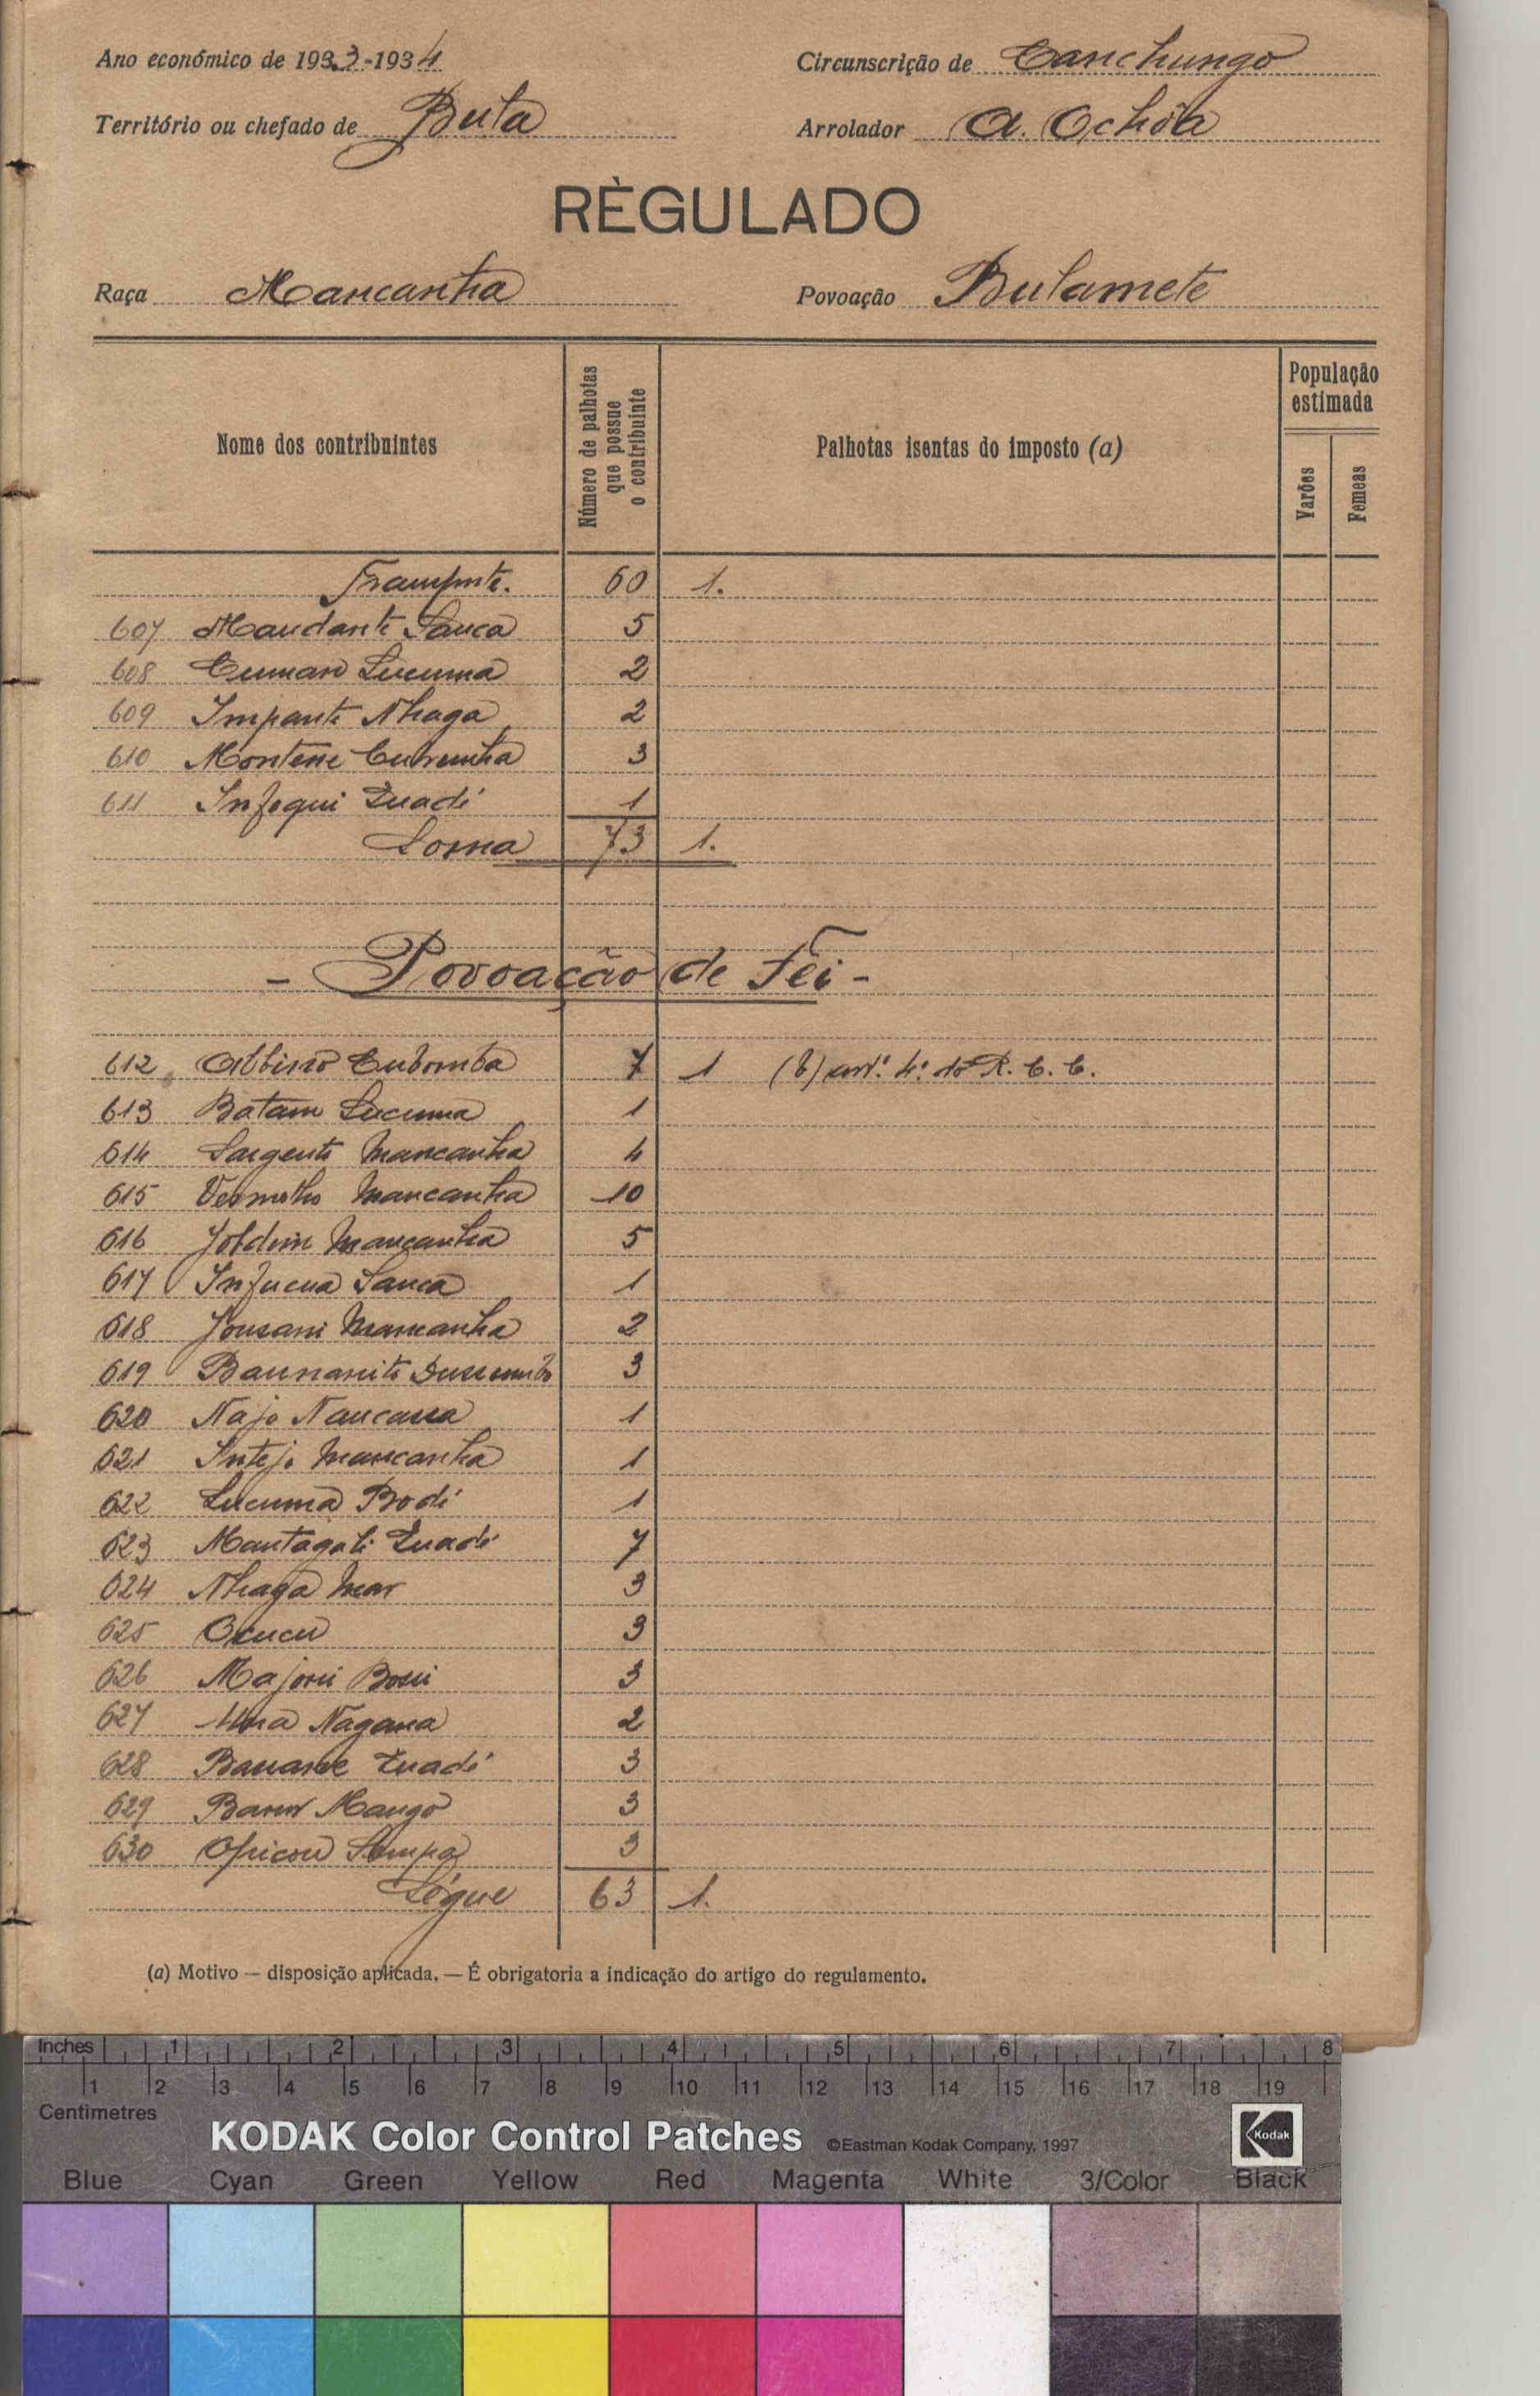 Ano económico de 1933-1934 Circunscrição de Canchungo
Território ou chefado de Bula Arrolador A. Ochôa
RÈGULADO
Raça Mancanha Povoação Bulamete
Nome dos contribuintes
Número de palhotas que possue o contribuinte
Palhotas isentas do imposto (a)
População estimada
Varões
Femeas
Transporte. 60 1.
607 Maudante Sanca 5
608 Lucuma 2
609 Impante Nhaga 2
610 Montene 3
611 Infoqui Quadé 1
Soma 73 1.
- Povoação de Fei -
612 Albino Cubomba 7 1 (b) art.º 4.º do R. C. C.
613 Batam Lucuma 1
614 Sargento Mancanha 4
615 Vermelho Mancanha 10
616 Mancanha 5
617 Infucua Sanca 1
618 Mancanha 2
619 3
620 Najo 1
621 Intejo Mancanha 1
622 Lucuma Bodé 1
623 Mantagali Quadé 7
624 Nhaga Mar 3
625 Ocucu 3
626 3
627 2
628 Quadé 3
629 Mango 3
630 3
Ségue 63 1.
(a) Motivo — disposição aplicada. — É obrigatoria a indicação do artigo do regulamento.
Inches 1 2 3 4 5 6 7 8
1 2 3 4 5 6 7 8 9 10 11 12 13 14 15 16 17 18 19
Centimetres
KODAK Color Control Patches ©Eastman Kodak Company, 1997 Kodak
Blue Cyan Green Yellow Red Magenta White 3/Color Black